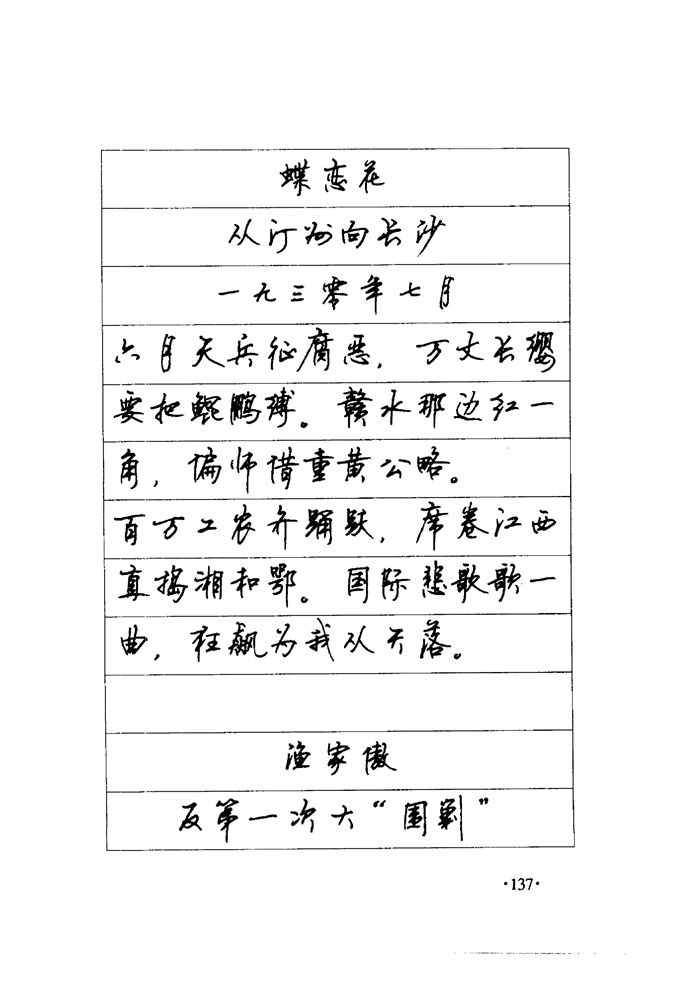 蝶恋花
从汀州向长沙
一九三零年七月
六月天兵征腐恶，万丈长缨
要把鲲鹏缚。赣水那边红一
角，偏师借重黄公略。
百万工农齐踊跃，席卷江西
直捣湘和鄂。国际悲歌歌一
曲，狂飙为我从天落。
渔家傲
反第一次大“围剿”
·137·